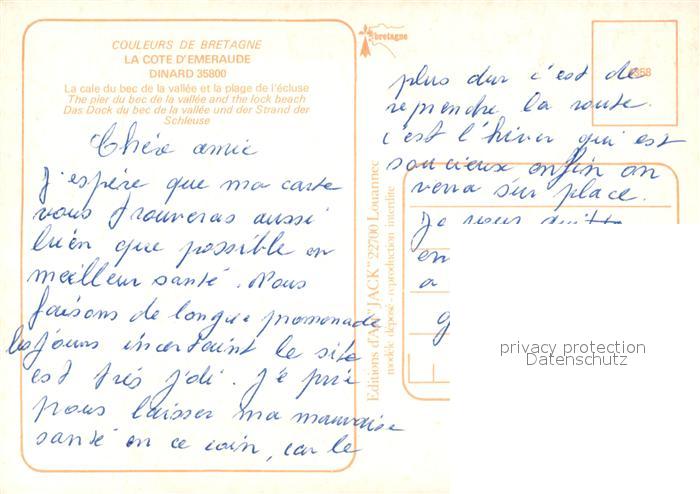 COULEURS DE BRETAGNE
LA COTE D'EMERAUDE
DINARD 35800
La cale du bec de la vallée et la plage de l'écluse
The pier du bec de la vallée and the lock beach
Das Dock du bec de la vallée und der Strand der
Schleuse
Chére amie
J'espére que ma carte
vous trouveras aussi
bien que possible en
meilleur santé. Nous
faisons de longue promenade
les jours incertaint le site
est trés joli. J'é prie
pous laisser ma mauvaise
santé en ce coin, car le
bretagne
plus dur c'est de
reprendre la route.
c'est l'hiver qui est
soucieux enfin on
verra sur place.
Je vous quitte
en
a
Editions d'Art "JACK" 22700 Louannec
modèle déposé - reproduction interdite
privacy protection
Datenschutz